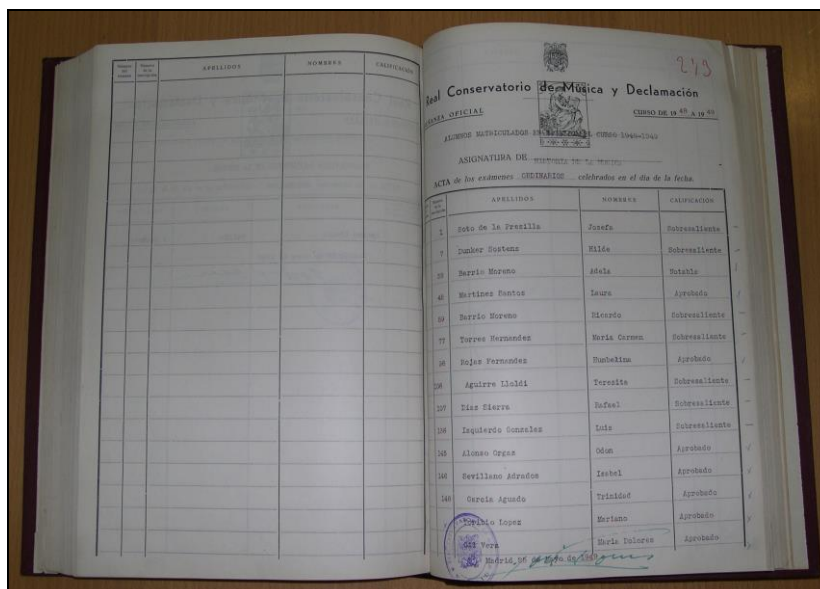 APELLIDOS NOMBRES CALIFICACIÓN
243
Real Conservatorio de Música y Declamación
OFICIAL CURSO DE 19 48 A 19 49
ALUMNOS MATRICULADOS CURSO 1948-1949
ASIGNATURA DE HISTORIA DE LA MUSICA
ACTA de los exámenes ORDINARIOS celebrados en el día de la fecha.
APELLIDOS NOMBRES CALIFICACIÓN
1 Soto de la Presilla Josefa Sobresaliente
7 Dunker Sostenz Hilda Sobresaliente
Barrio Moreno Adela Notable
Martinez Santos Laura Aprobado
Barrio Moreno Ricardo Sobresaliente
77 Torres Hernandez Maria Carmen Sobresaliente
Rojas Fernandez Humbelina Aprobado
Aguirre Lisldi Teresita Sobresaliente
Diaz Sierra Rafael Sobresaliente
Izquierdo Gonzalez Luis Sobresaliente
Alonso Orgaz Odon Aprobado
Sevillano Adrados Isabel Aprobado
Garcia Aguado Trinidad Aprobado
Lopez Mariano Aprobado
Gil Vera Maria Dolores Aprobado
Madrid, de de 1949